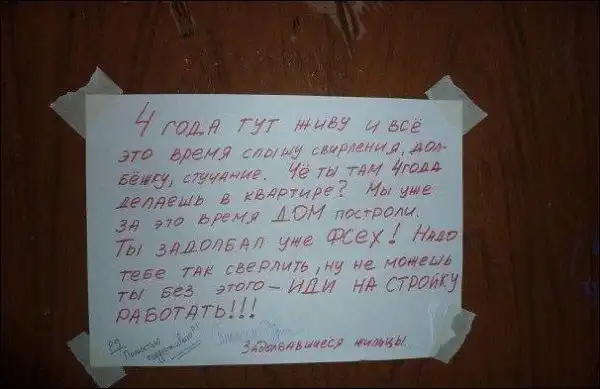 4 ГОДА ТУТ ЖИВУ И ВСЁ
ЭТО ВРЕМЯ СЛЫШУ СВИРЛЕНИЯ, ДОЛ-
БЁЖКУ, СТУЧАНИЕ. ЧЁ ТЫ ТАМ 4 ГОДА
ДЕЛАЕШЬ В КВАРТИРЕ? МЫ УЖЕ
ЗА ЭТО ВРЕМЯ ДОМ ПОСТРОЛИ.
ТЫ ЗАДОЛБАЛ УЖЕ ФСЕХ! НАДО
ТЕБЕ ТАК СВЕРЛИТЬ, НУ НЕ МОЖЕШЬ
ТЫ БЕЗ ЭТОГО – ИДИ НА СТРОЙКУ
РАБОТАТЬ!!!
Полностью
поддерживаю!!
ЗАДОЛБАВШИЕСЯ ЖИЛЬЦЫ